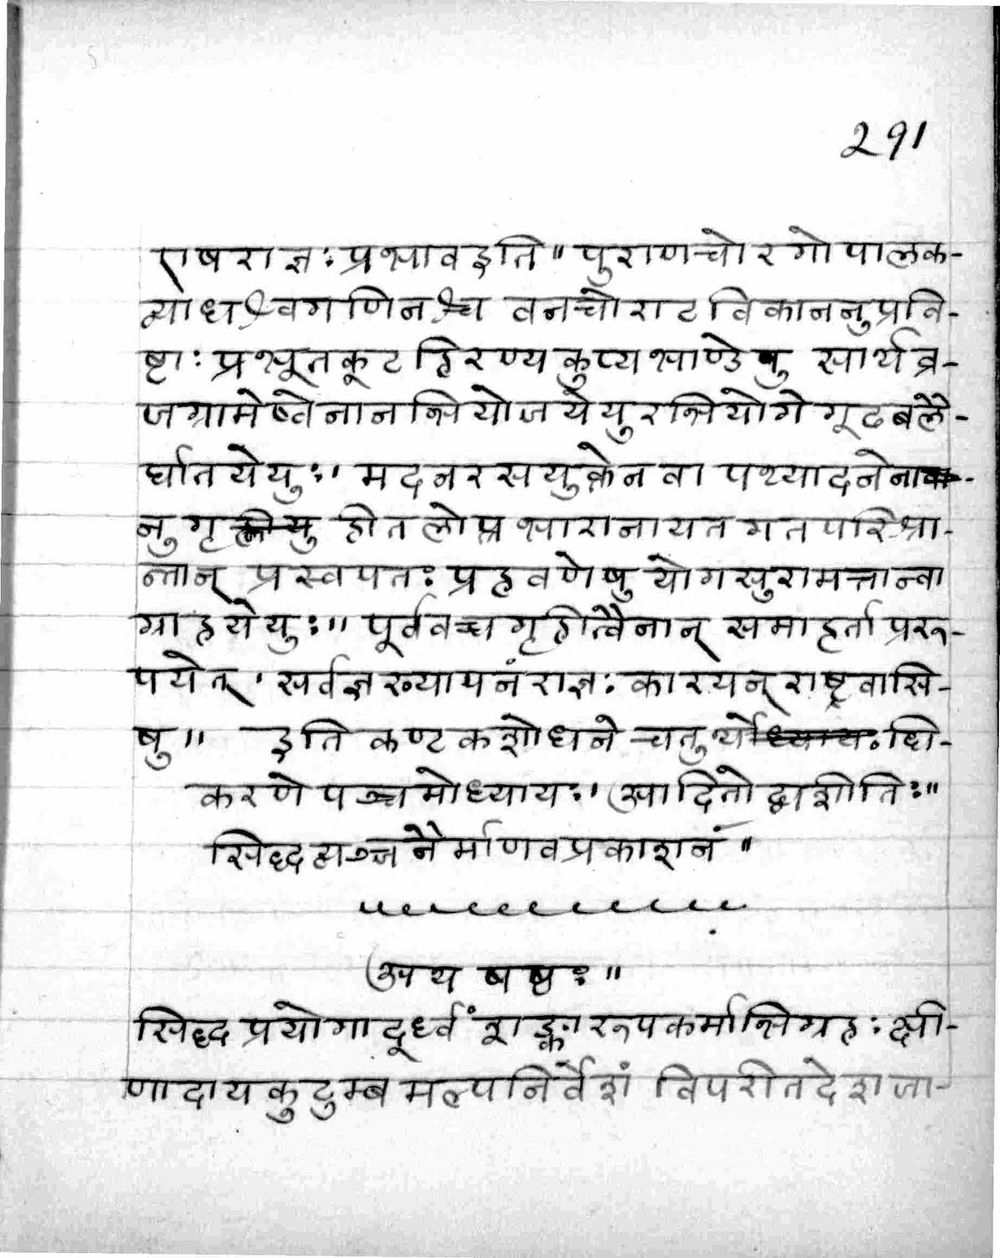 291
एष राज्ञः प्रभाव इति॥ पुराणचोरगोपालक-
व्याधश्वगणिनश्च वनचोराटविकाननुप्रवि-
ष्टाः प्रभूतकूटहिरण्यकुप्यभाण्डेषु सार्थव्र-
जग्रामेष्वेनानभियोजयेयुरभियोगे गूढबलै-
र्घातयेयुः। मदनरसयुक्तेन वा पथ्यादनेना-
नुगृहीतलोप्त्रभारानायतगतपरिश्रा-
न्तान् प्रस्वपतः प्रहवणेषु योगसुरामत्तान्वा
ग्राहयेयुः॥ पूर्ववच्च गृहीत्वैनान् समाहर्ता प्ररू-
पयेत्। सर्वज्ञख्यापनं राज्ञः कारयन् राष्ट्रवासि-
षु॥ इति कण्टकशोधने चतुर्थोधि-
करणे पञ्चमोध्यायः। आदितो द्वाशीतिः॥
सिद्धव्यञ्जनैर्माणवप्रकाशनं॥
अथ षष्ठः॥
सिद्धप्रयोगादूर्ध्वं शङ्कारूपकर्माभिग्रहः क्षी-
णादायकुटुम्बमल्पनिर्वेशं विपरीतदेशजा-